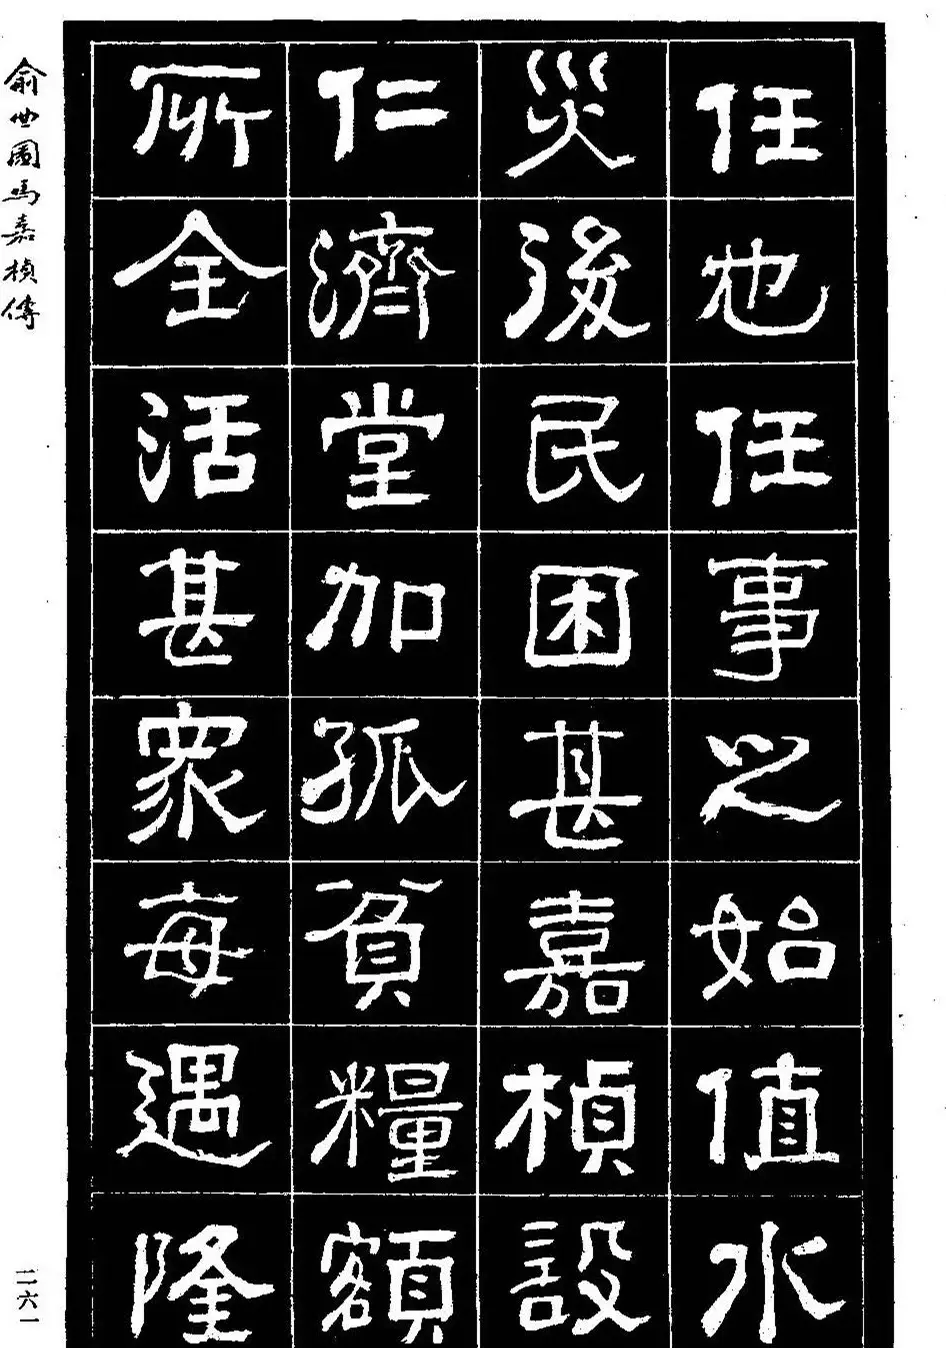 任也任事之始值水
災後民困甚嘉楨設
仁濟堂加孤貧糧額
所全活甚眾每遇隆
俞曲園馬嘉楨傳
二六一